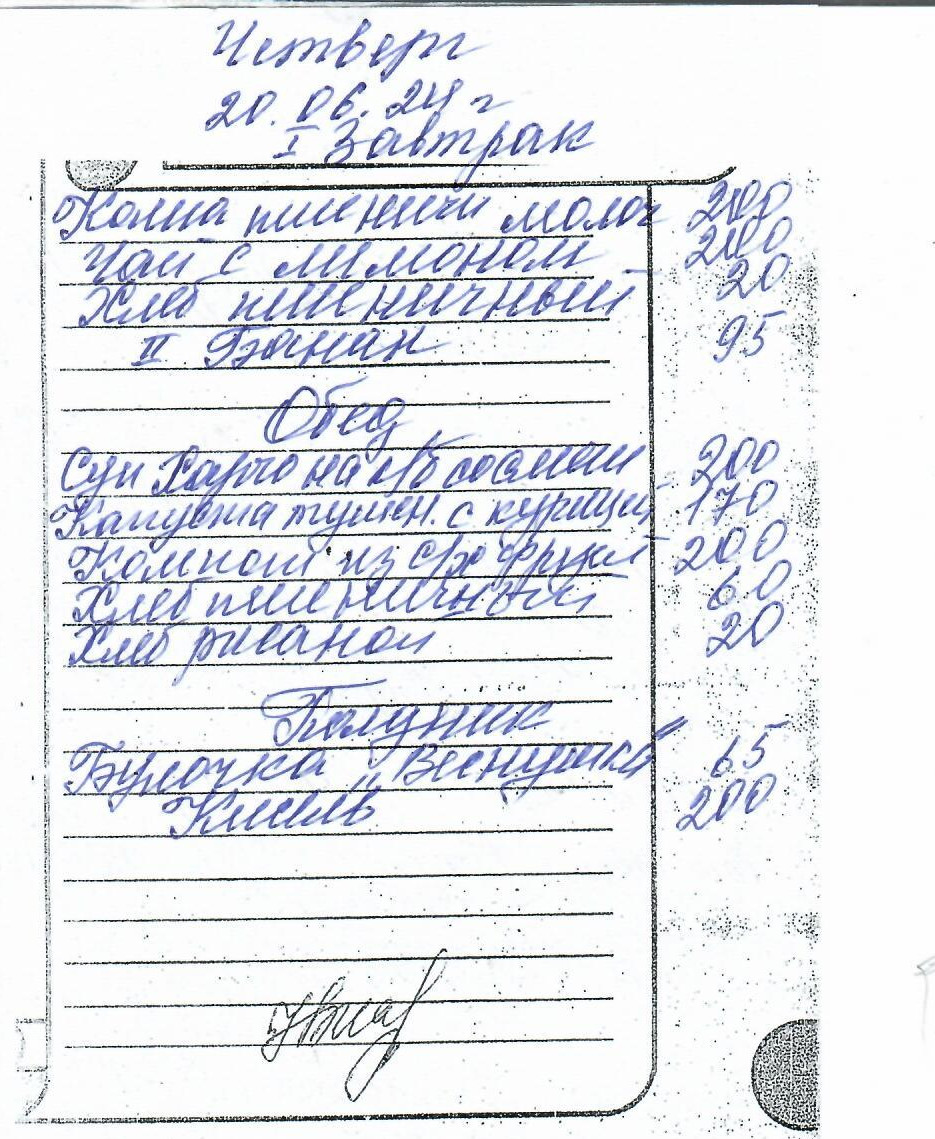 Четверг
20.06.24 г
I Завтрак
Каша пшеничн молоч 200
Чай с лимоном 200
Хлеб пшеничный 20
II Банан 95
Обед
Суп Харчо на м/б со смет 200
Капуста тушен. с курицей 170
Компот из с/х фрукт 200
Хлеб пшеничный 60
Хлеб ржаной 20
Полдник
Булочка "Веснушка" 65
Кисель 200